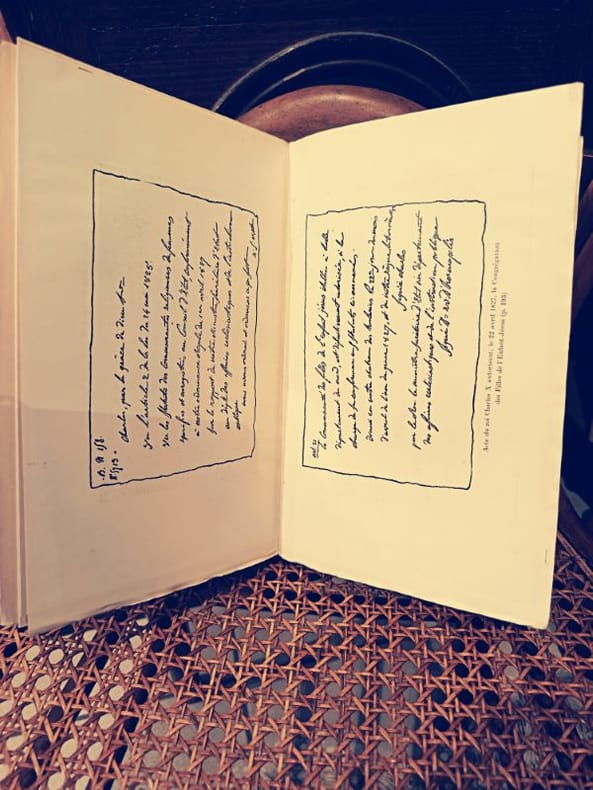 Charles, par la grâce de Dieu
Vu l'article 2 de la loi du 24 mai 1825;
Vu les statuts des Communautés religieuses de femmes
vérifiés et enregistrés au Conseil d'Etat conformément
à notre ordonnance royale du 1er avril 1827
Sur le rapport de notre ministre secrétaire d'Etat
au dépt des affaires ecclésiastiques et de l'instruction
publique
nous avons ordonné et ordonnons
la Communauté des filles de l'enfant jésus établie à Lille
département du nord, est définitivement autorisée, à la
charge de se conformer aux statuts
Donné en notre château des Tuileries le 22e jour du mois
d'avril de l'an de grace 1827, et de notre règne le troisième
signé Charles
par le Roi le ministre secrétaire d'Etat au département
des affaires ecclésiastiques et de l'instruction publique
signé D. ev d'hermopolis
Acte du roi Charles X autorisant, le 22 avril 1827, la Congrégation
des Filles de l'Enfant-Jésus (p. 193)